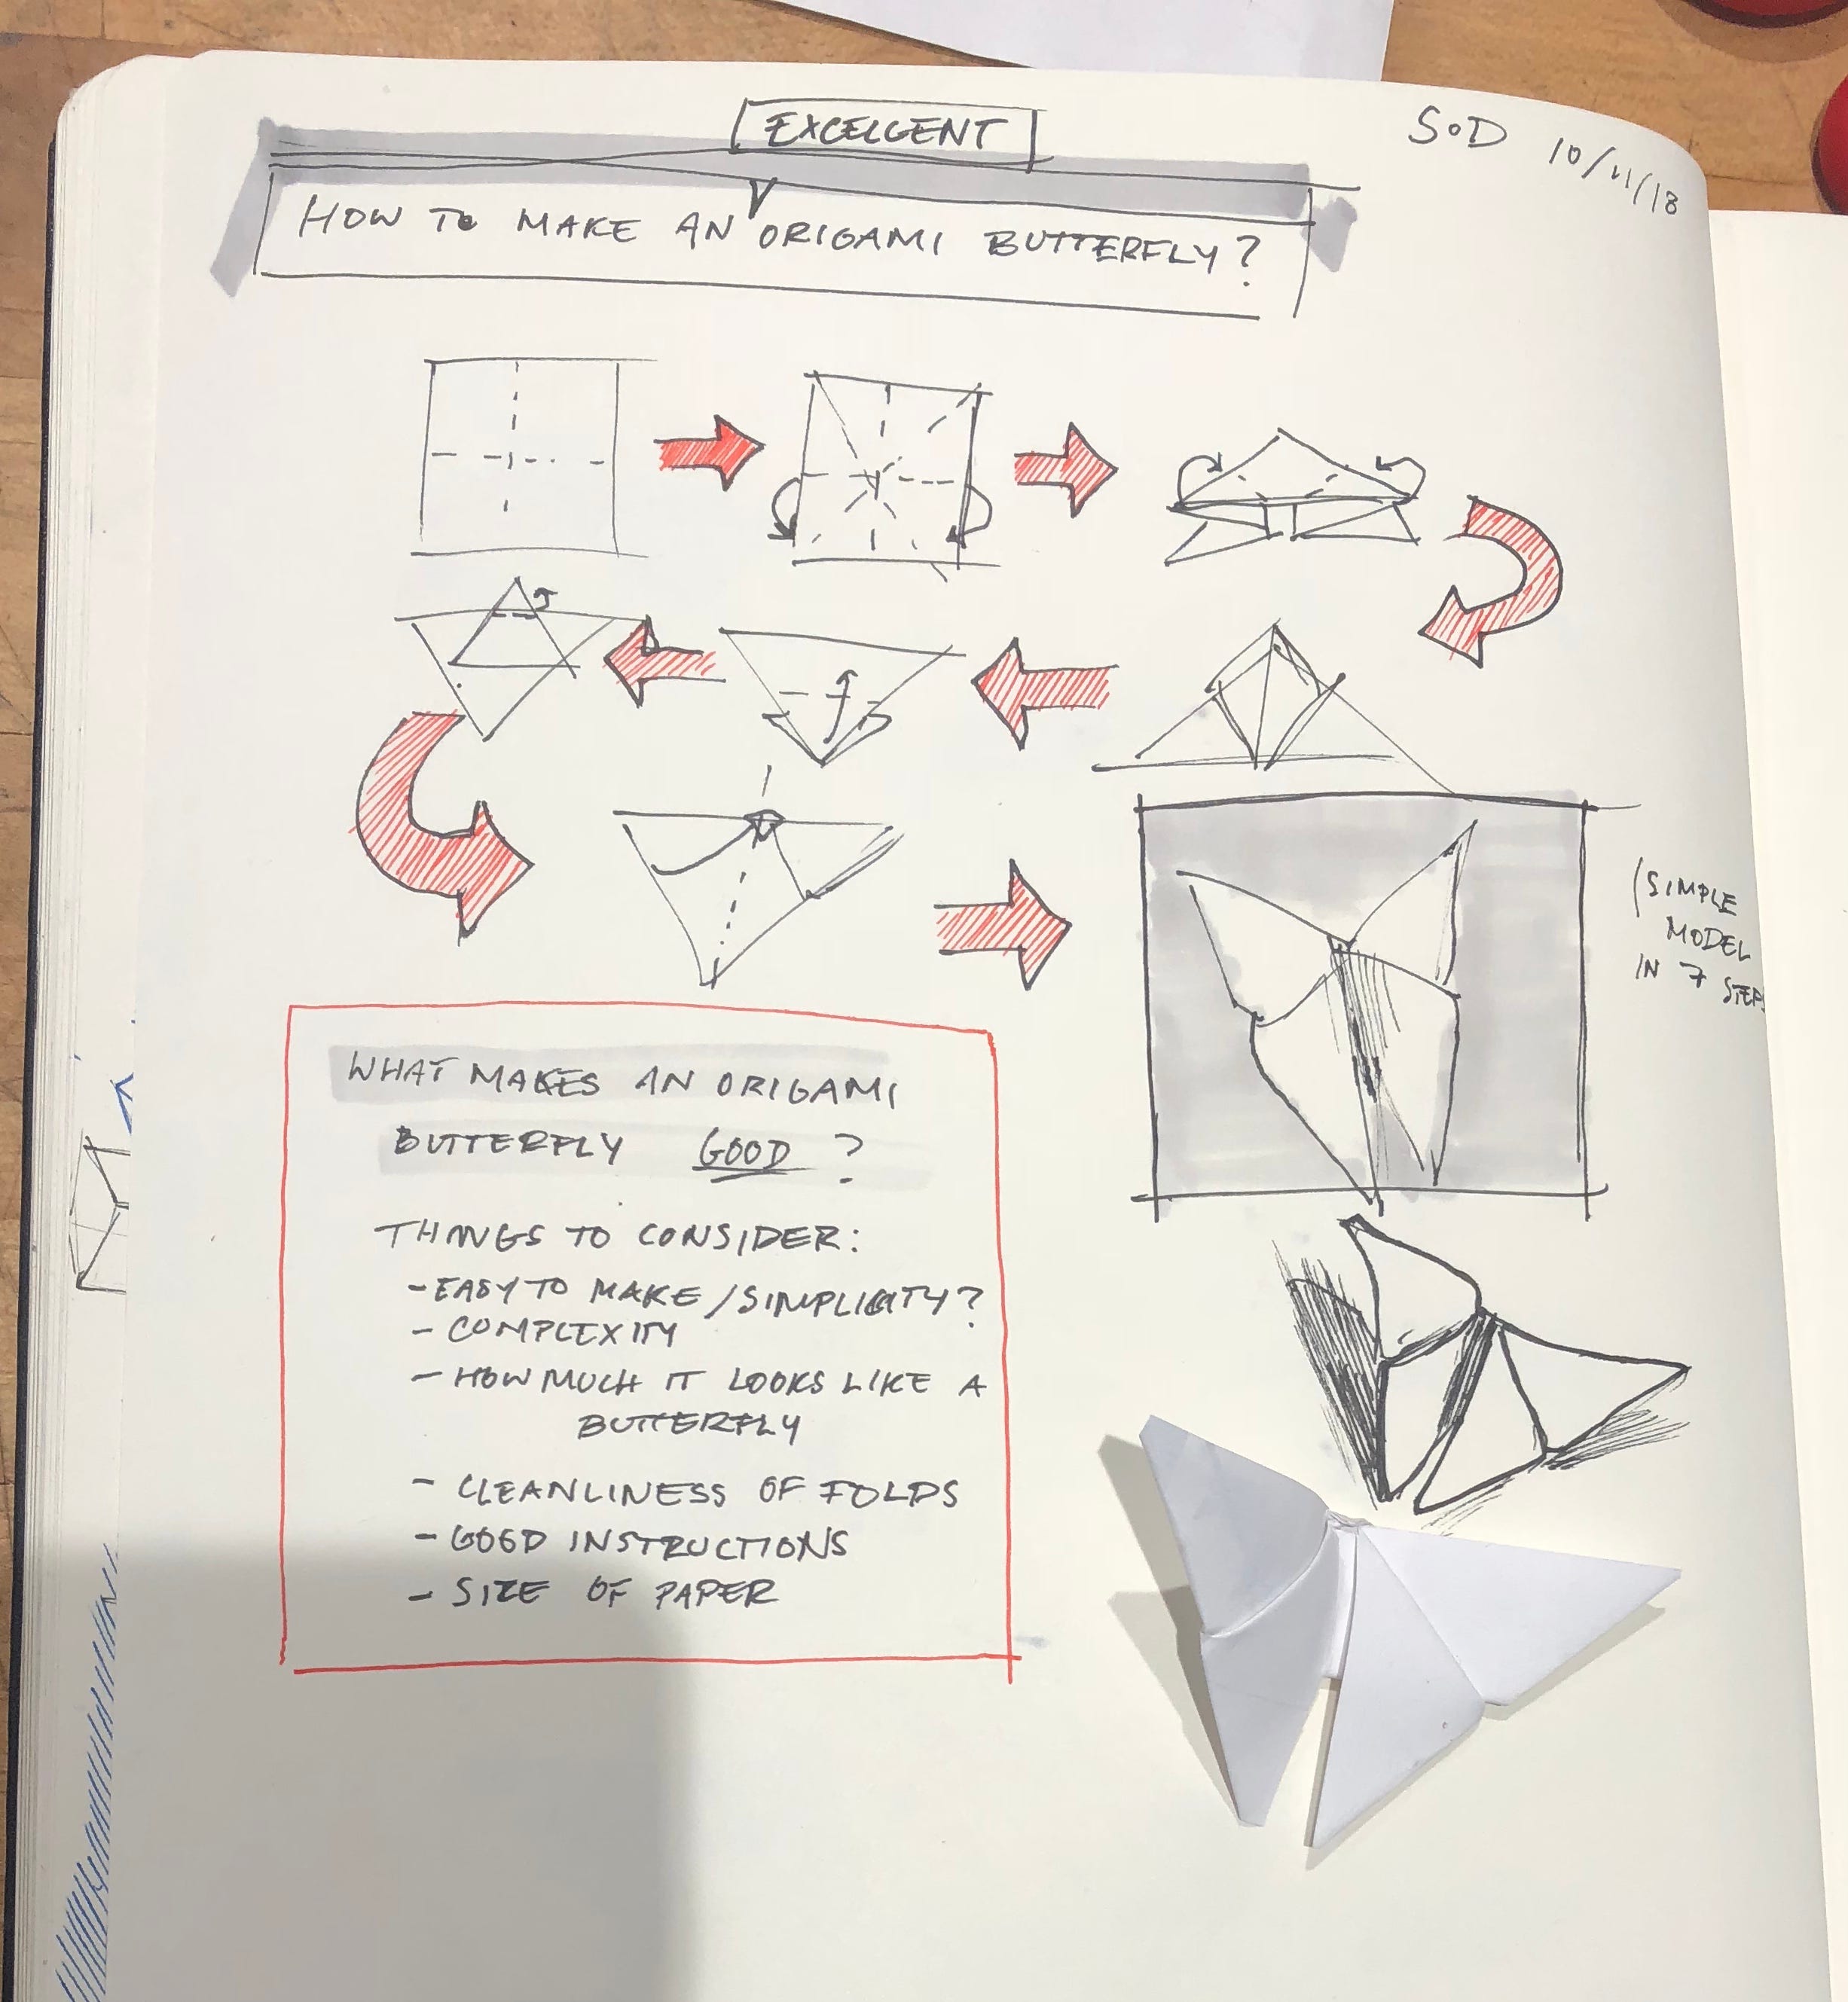 EXCELLENT
SOD 10/11/18
HOW TO MAKE AN ORIGAMI BUTTERFLY?
(SIMPLE
MODEL
IN 7 STEPS
WHAT MAKES AN ORIGAMI
BUTTERFLY GOOD ?
THINGS TO CONSIDER:
- EASY TO MAKE/SIMPLICITY?
- COMPLEXITY
- HOW MUCH IT LOOKS LIKE A
BUTTERFLY
- CLEANLINESS OF FOLDS
- GOOD INSTRUCTIONS
- SIZE OF PAPER